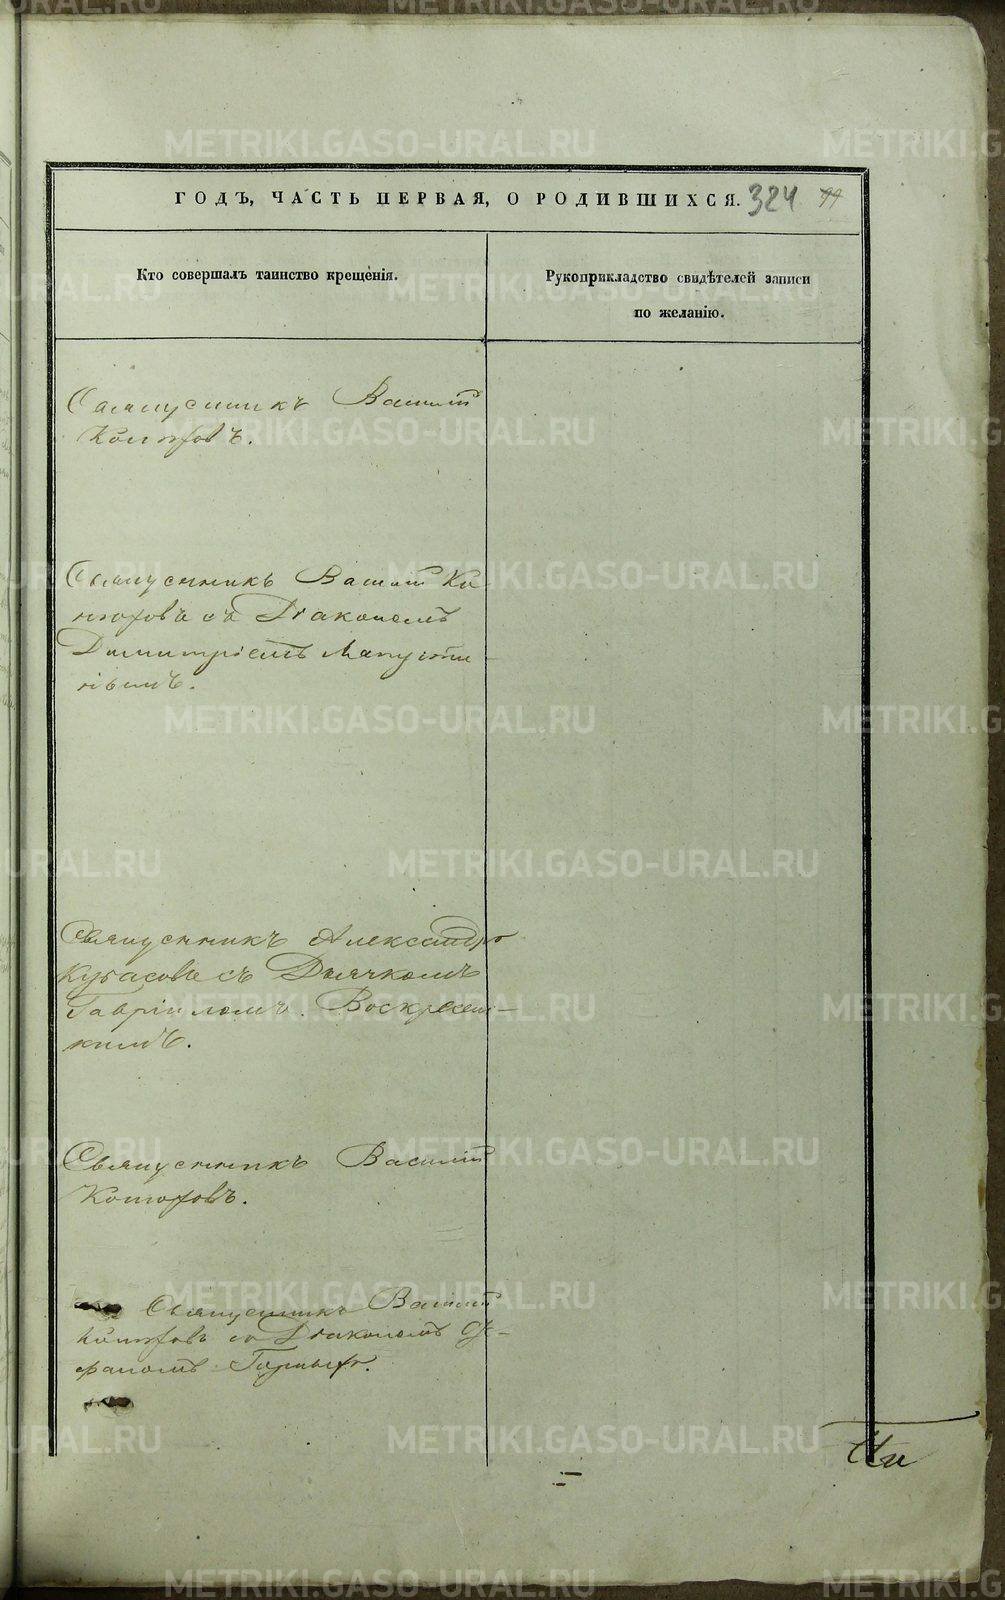 ГОДЪ, ЧАСТЬ ПЕРВАЯ, О РОДИВШИХСЯ. 324
Кто совершалъ таинство крещенія.
Рукоприкладство свидѣтелей записи
по желанію.
Священникъ Василій
Конюховъ.
Священникъ Василій Ко
нюховъ съ Діакономъ
Димитріемъ Лапусти
нымъ.
Священникъ Александръ
Кубасовъ съ Дьячкомъ
Гавріиломъ Воскресен-
скимъ.
Священникъ Василій
Конюховъ.
Священникъ Василій
Конюховъ со Діакономъ Сте-
фаномъ
METRIKI.GASO-URAL.RU